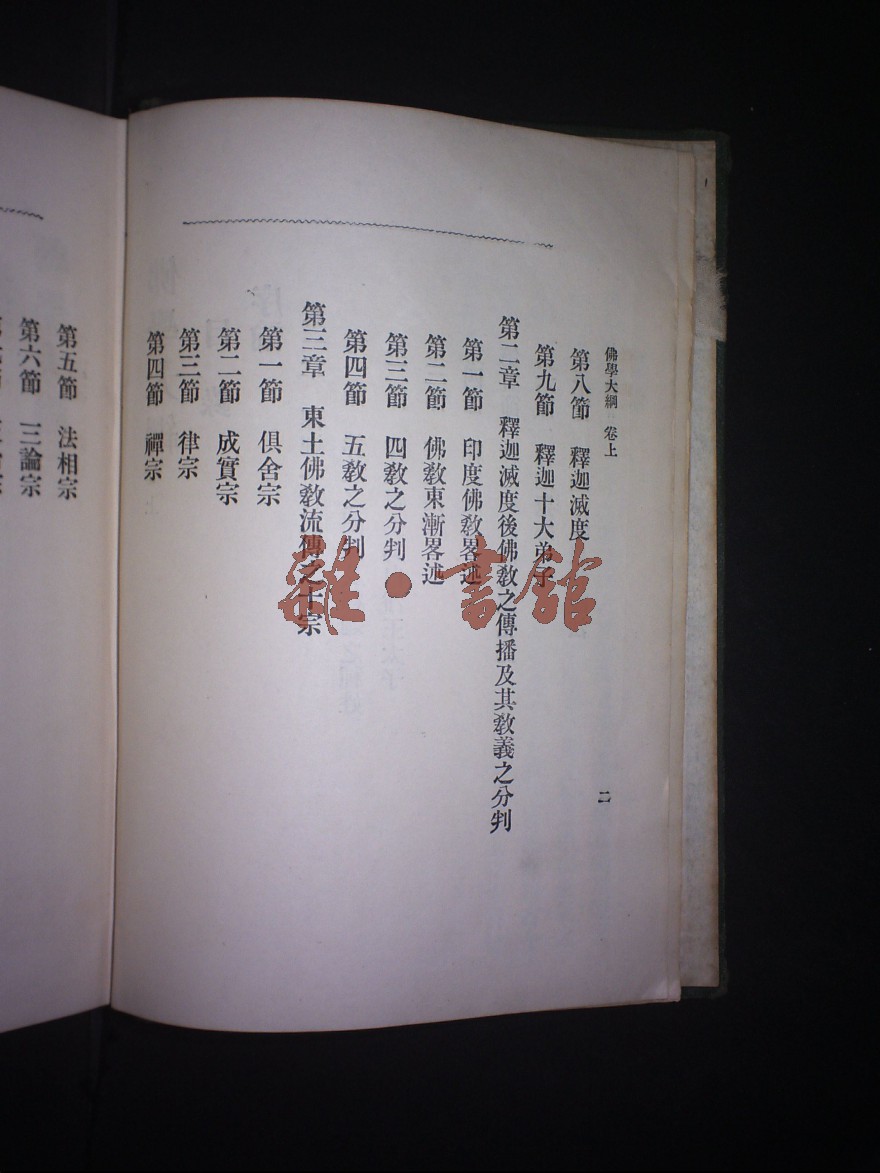 佛學大綱 卷上
二
第八節 釋迦滅度
第九節 釋迦十大弟子
第二章 釋迦滅度後佛教之傳播及其教義之分判
第一節 印度佛教畧述
第二節 佛教東漸畧述
第三節 四教之分判
第四節 五教之分判
第三章 東土佛教流傳之十宗
第一節 俱舍宗
第二節 成實宗
第三節 律宗
第四節 禪宗
第五節 法相宗
第六節 三論宗
雜·書館